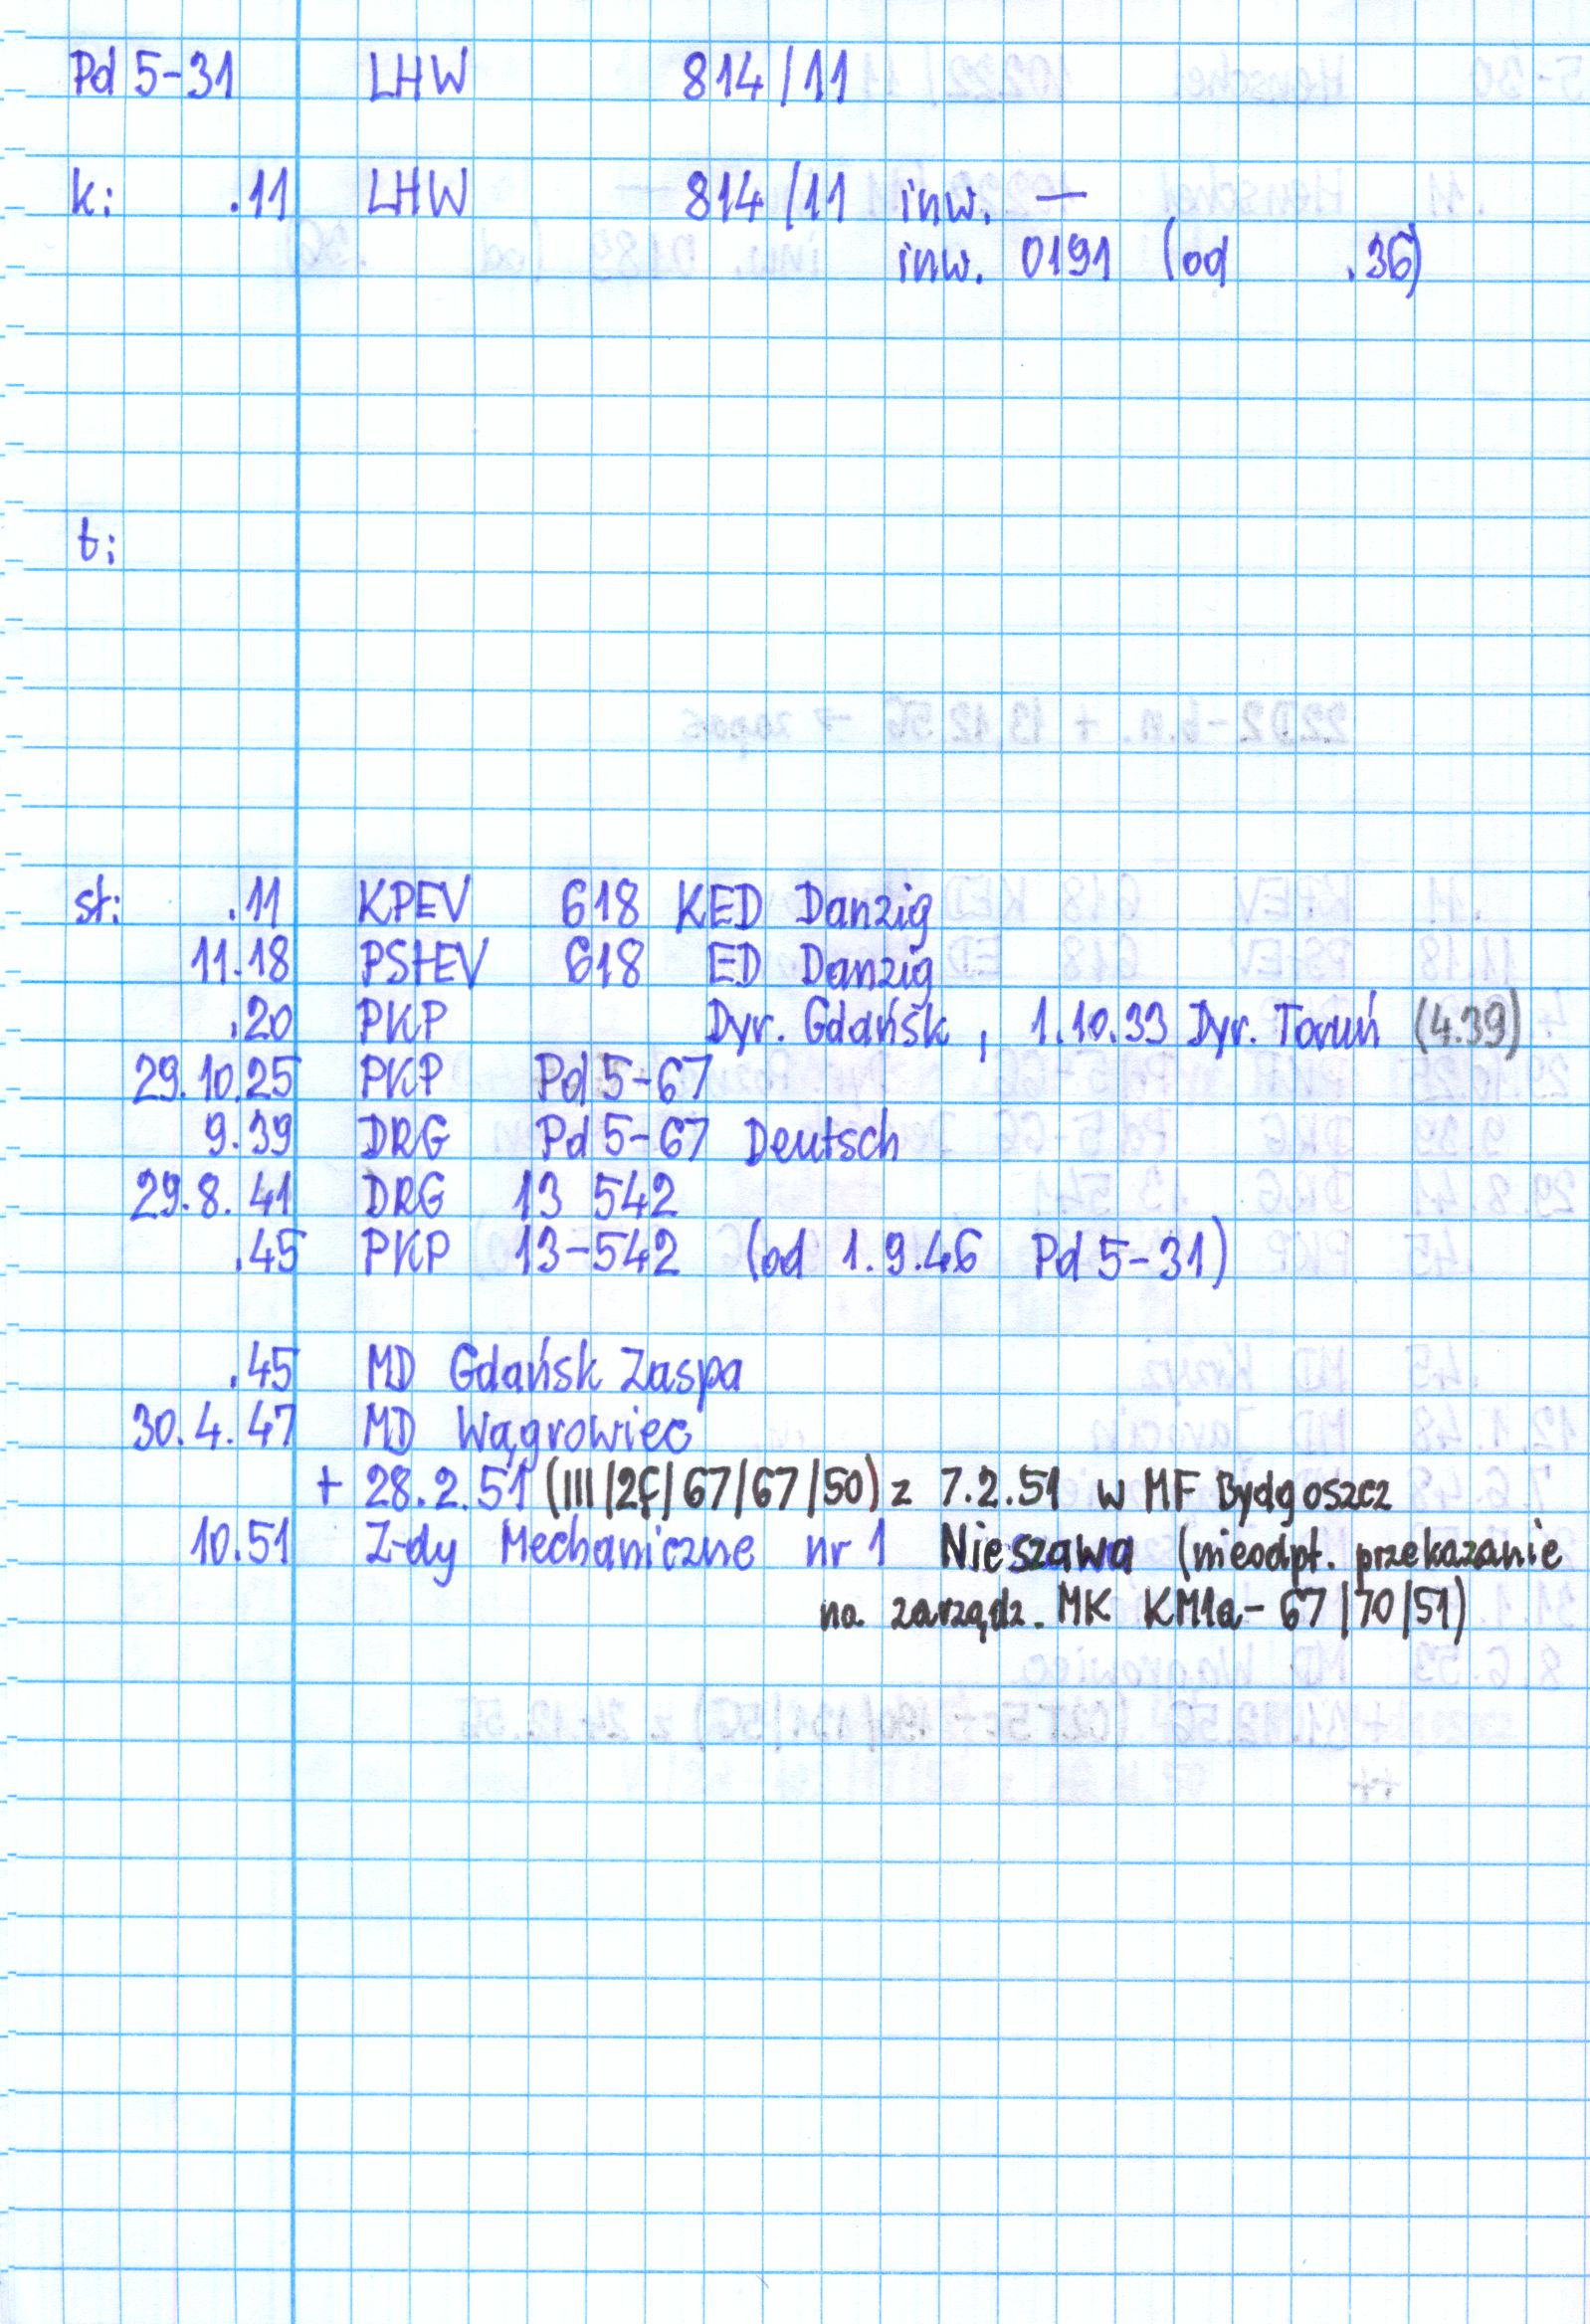 Pd 5-31 LHW 814/11
k: .11 LHW 814/11 inw. —
inw. 0191 (od .36)
t:
st: .11 KPEV 618 KED Danzig
11.18 PStEV 618 ED Danzig
.20 PKP Dyr. Gdańsk, 1.10.33 Dyr. Toruń (4.39)
29.10.25 PKP Pd 5-67
9.39 DRG Pd 5-67 Deutsch
29.8.41 DRG 13 542
.45 PKP 13-542 (od 1.9.46 Pd 5-31)
.45 MD Gdańsk Zaspa
30.4.47 MD Wągrowiec
+ 28.2.51 (III/2F/67/67/50) z 7.2.51 w MF Bydgoszcz
10.51 Z-dy Mechaniczne nr 1 Nieszawa (nieodpł. przekazanie
na zarządz. MK KM1a-67/70/51)